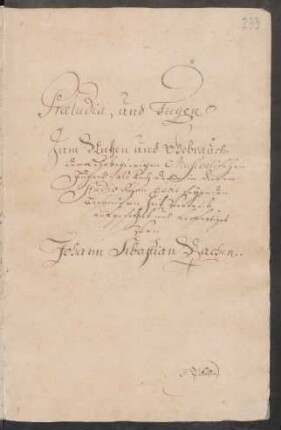 233
Præludia, und Fugen.
Zum Nutzen und Gebrauch
der Lehrbegierigen Musicalischen
Jugend als auch derer in diesem
Studio schon habil seyenden
besonderen Zeit Vertreib
aufgesetzet und verfertiget
von
Johann Sebastian Bachen.